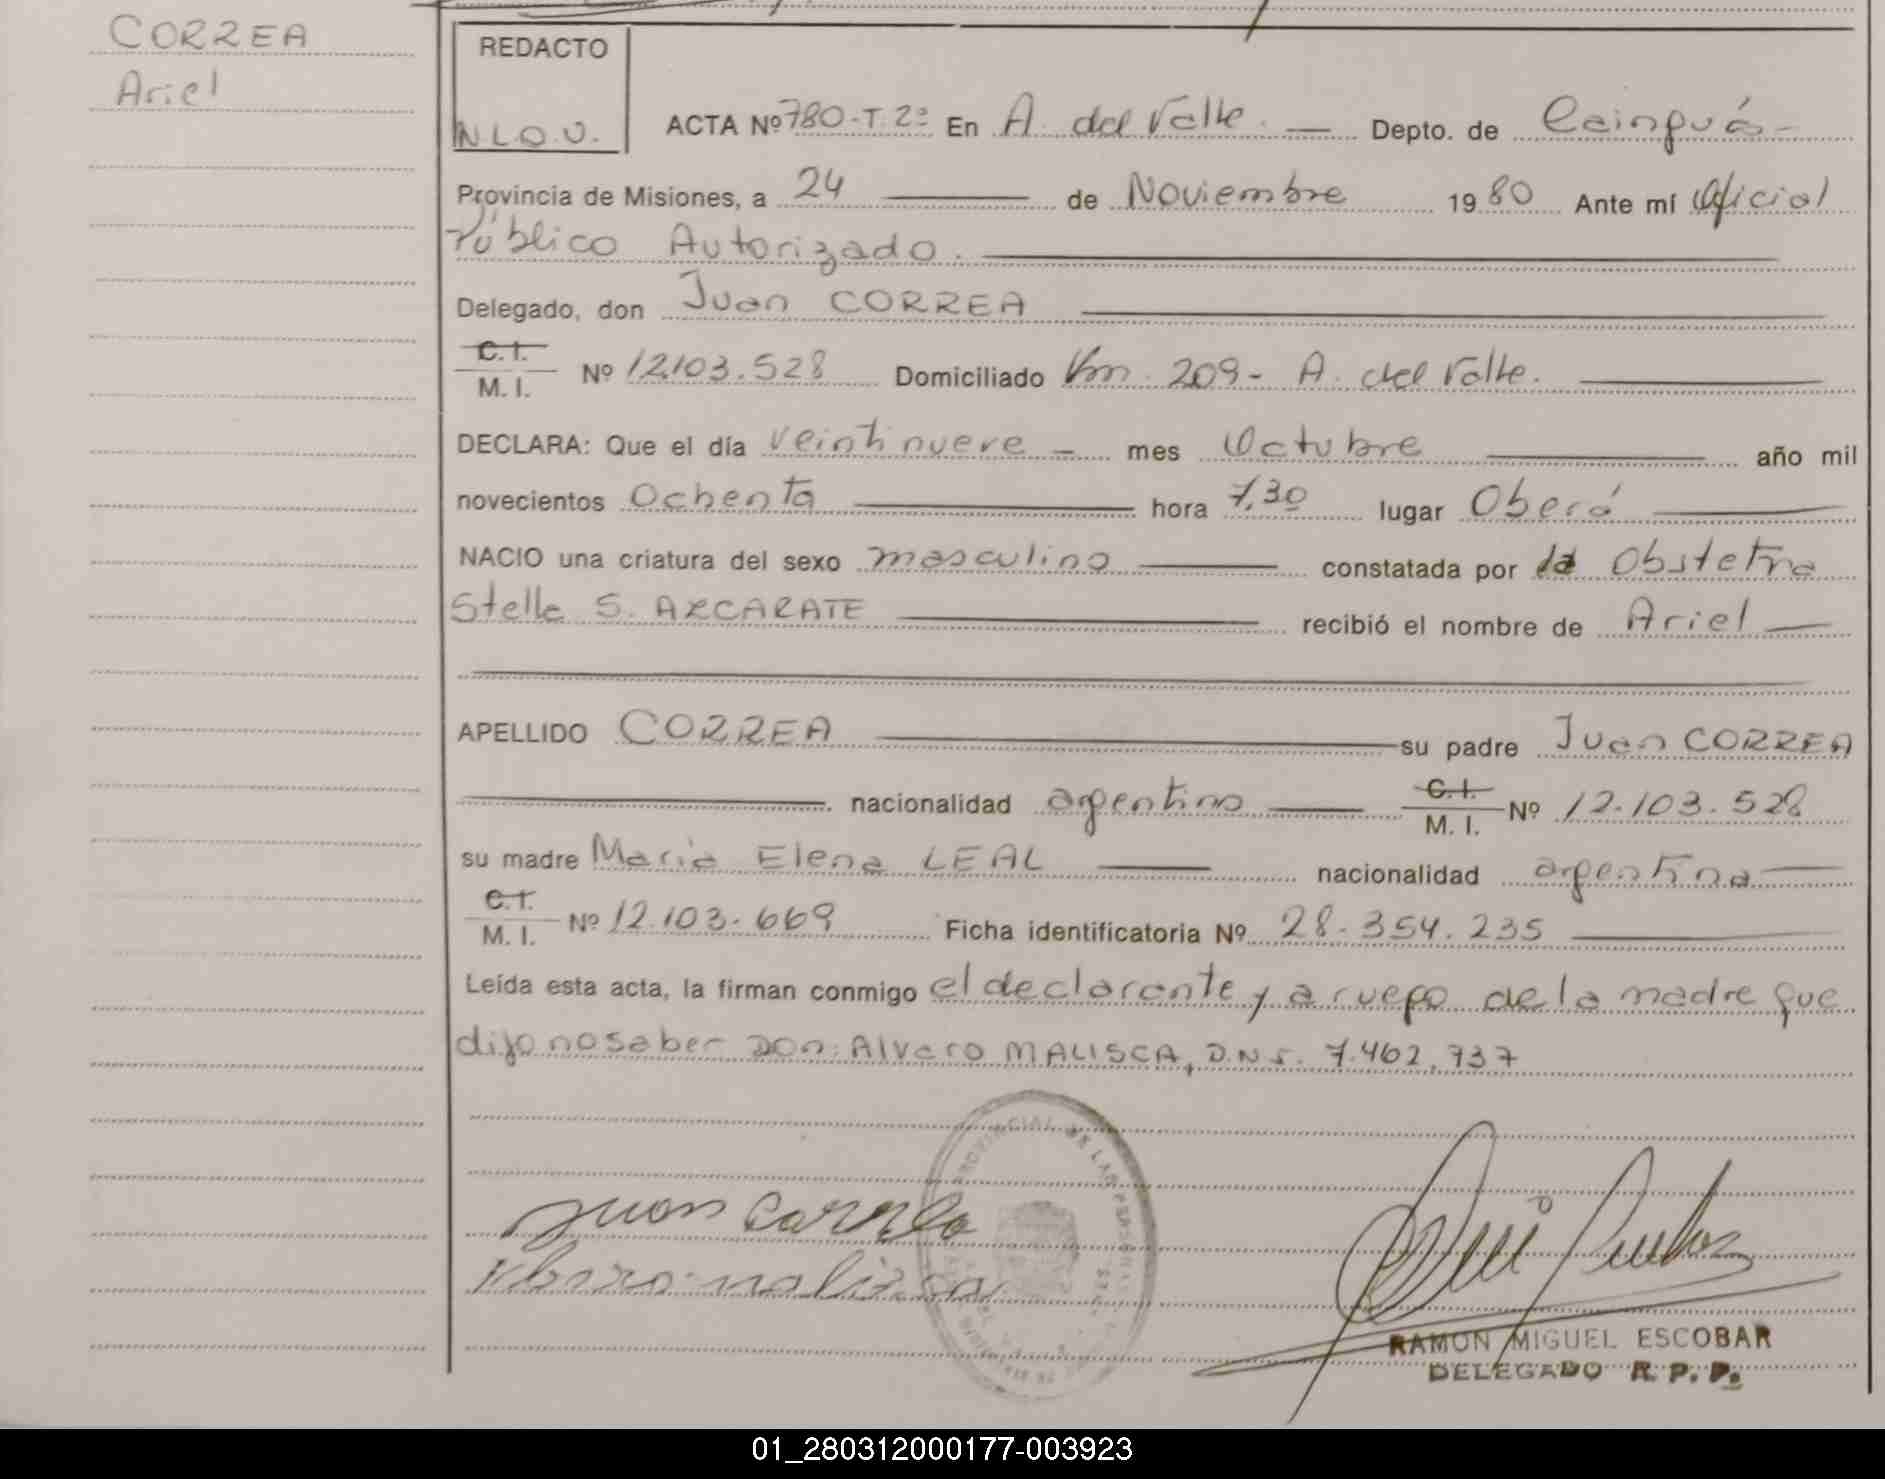 CORREA
Ariel
REDACTO
N.L.O.U.
ACTA Nº 780-T.2º En A. del Valle. Depto. de Cainguás
Provincia de Misiones, a 24 de Noviembre 1980 Ante mí Oficial
Público Autorizado.
Delegado, don Juan CORREA
C.I.
M. I. Nº 12.103.528 Domiciliado Km. 209- A. del Valle.
DECLARA: Que el día veintinueve mes Octubre año mil
novecientos Ochenta hora 7,30 lugar Oberá
NACIO una criatura del sexo masculino constatada por la Obstetra
Stella S. AZCARATE recibió el nombre de Ariel
APELLIDO CORREA su padre Juan CORREA
nacionalidad argentino C.I.
M. I. Nº 12.103.528
su madre Maria Elena LEAL nacionalidad argentina
C.I.
M. I. Nº 12.103.669 Ficha identificatoria Nº 28.354.235
Leída esta acta, la firman conmigo el declarante y a ruego de la madre que
dijo no saber Don: Alvaro MALISCA, D.N.I. 7.462.737
PROVINCIAL DE LAS PERSONAS
Juan Correa
RAMON MIGUEL ESCOBAR
DELEGADO R. P. P.
01_280312000177-003923